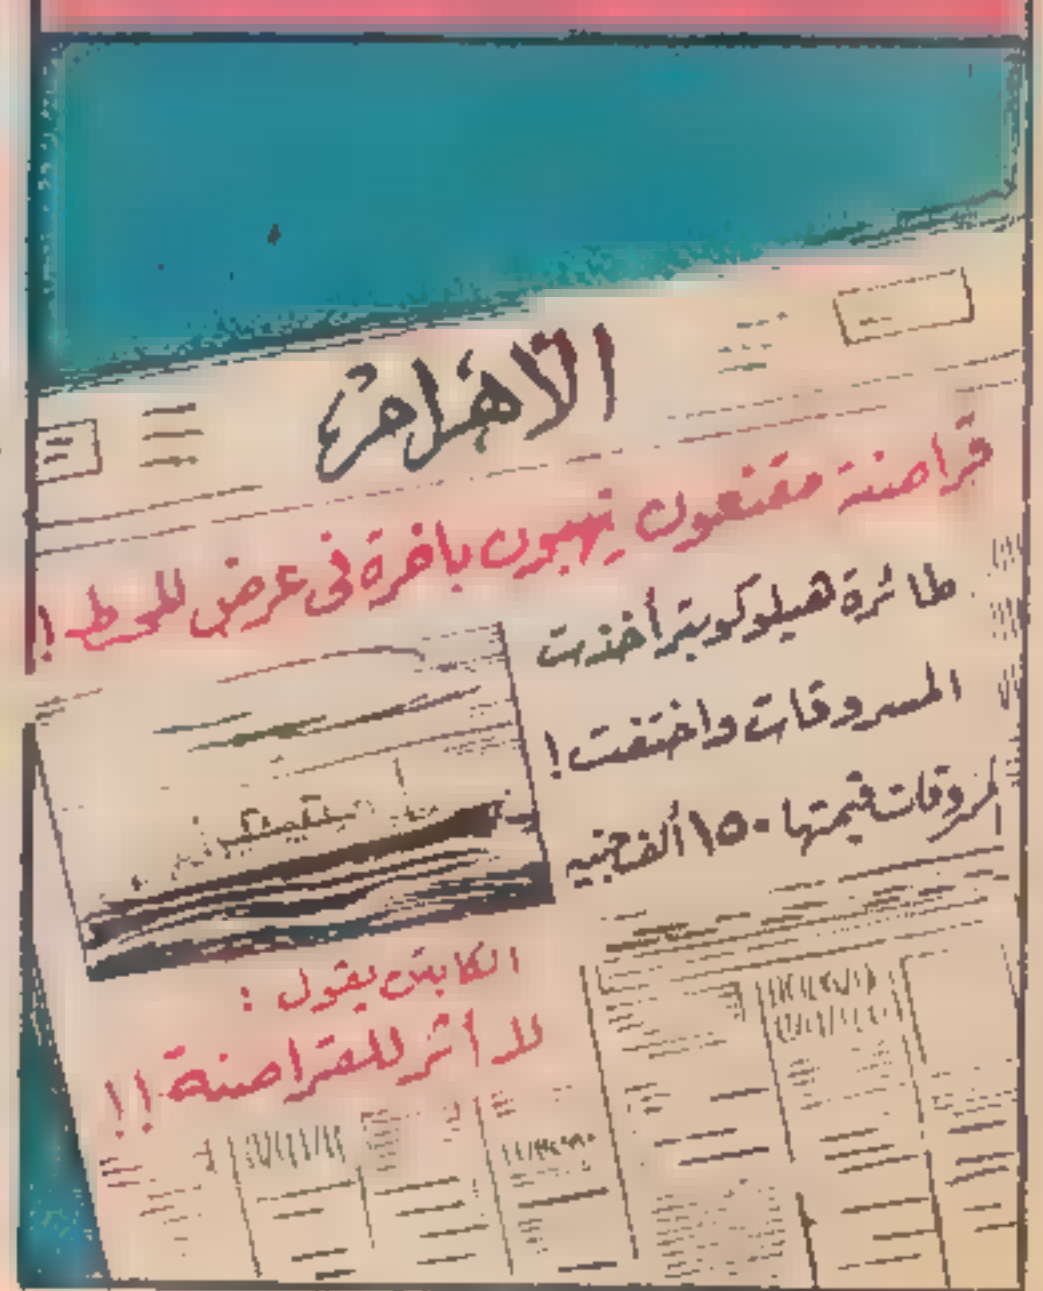 الاهرام
قراصنة مقنعون ينهبون باخرة فى عرض المحيط !
طائرة هيلوكوبتر أخذت
المسروقات واختفت !
قيمتها ١٥٠ ألف جنيه
الكابتن يقول :
لا أثر للقراصنة !!